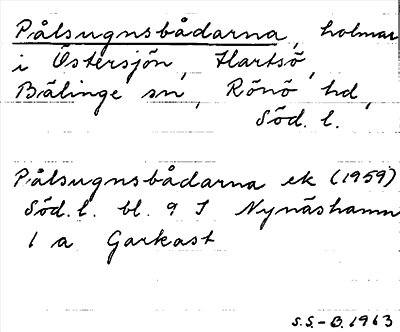 Pålsugnsbådarna, holmar
i Östersjön, Hartsö,
Bälinge sn, Rönö hd,
Söd. l.
Pålsugnsbådarna ek (1959)
Söd. l. bl. 9 I Nynäshamn
1 a Garkast
S.S-B. 1963